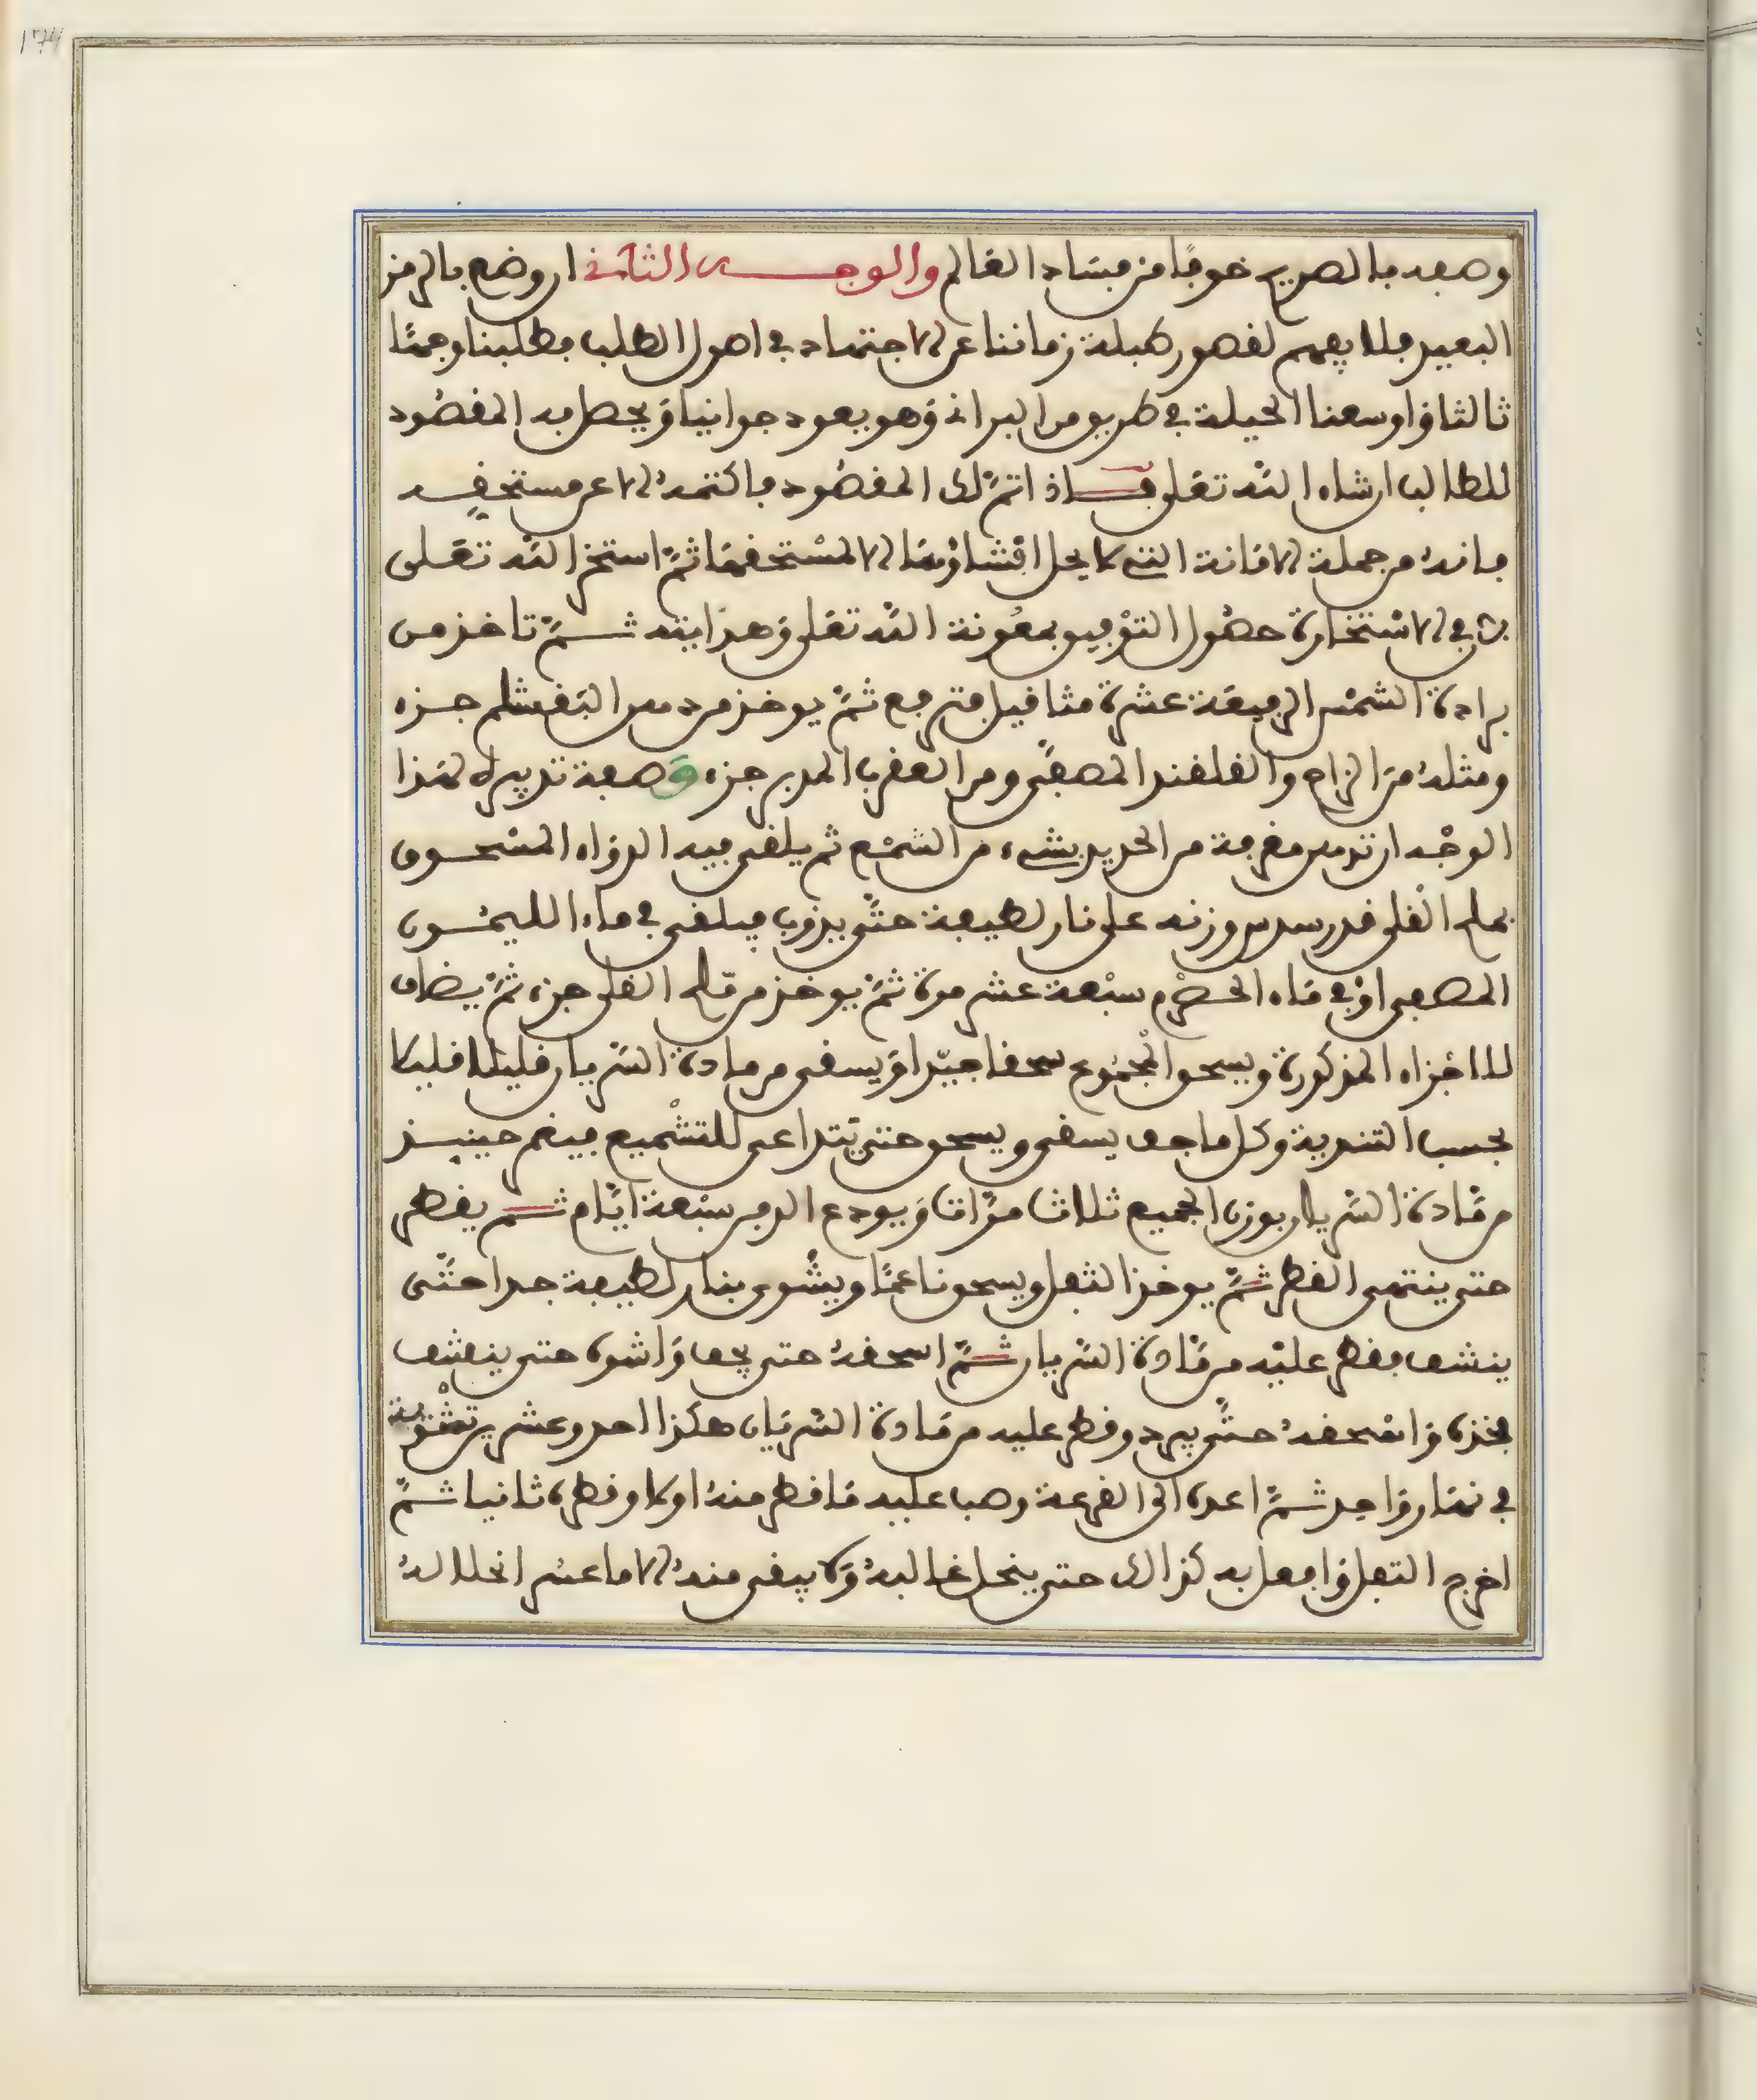 وصفه بالصريح خوفًا من فساد العالم والوجه الثاني ان وضع بالرمز
البعيد فلا يفهم لقصور طبلة زماننا عن الاجتهاد في اصول الطلب فطلبنا وجهًا
ثالثا واوسعنا الحيلة في طريق من البراني وهو يعود جوانيا ويحصل به المقصود
للطالب ان شاء الله تعلى فاذ اتم لك المقصود فاكتمه الا عن مستحقه
فانه من جملة الامانة التي لا يحل افشاؤها الا لمستحقها ثم استخر الله تعلى
في الاستخارة حصول التوفيق بمعونة الله تعلى وهدايته ثم تاخذ من
برادة الشمس الرفيعة عشرة مثاقيل فترفع ثم يوخذ من جزء
ومثله من الزاج والقلقند المصفى ومن العقرب المدبر جزء وصفة تدبيره لهذا
الوجه ان تدهن مغرفة من الحديد بشيء من الشمع ثم يلقى فيه الدواء المسحوق
بملح القلى قدر سدس وزنه على نار لطيفة حتى يذوب فيلقى في ماء الليمون
المصفى او في ماء الحصرم سبعة عشر مرة ثم يوخذ من ملح القلى جزء ثم يضاف
للاجزاء المذكورة ويسحق المجموع سحقا جيدا ويسقى من مادة السريان قليلا قليلا
بحسب التندية وكل ما جف يسقى ويسحق حتى يتداعى للتشميع فيغمر حينيذ
من مادة السريان بوزن الجميع ثلاث مرات ويودع الدفن سبعة ايام ثم يقطر
حتى ينتهى القطر ثم يوخذ الثفل ويسحق ناعمًا ويشوى بنار لطيفة جدا حتى
ينشف فقطر عليه من مادة السريان ثم اسحقه حتى يجف واشوه حتى ينشف
فخذه واسحقه حتى يبرد وقطر عليه من مادة السريان هكذا احد وعشرين تشوية
في نهار واحد ثم اعده الى القرعة وصب عليه ما قطر منه اولا وقطره ثانيا ثم
اخرج الثفل وافعل به كذالك حتى ينحل غالبه ولا يبقى منه الا ما عسر انحلاله